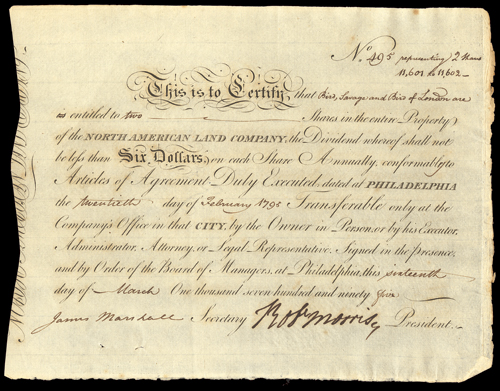 No. 495 representing 2 Shares
11,601 to 11,602
This is to Certify that Bird, Savage and Bird of London are
entitled to two Shares in the entire Property
of the NORTH AMERICAN LAND COMPANY, the Dividend whereof shall not
be less than Six Dollars, on each Share Annually, conformably to
Articles of Agreement Duly Executed, dated at PHILADELPHIA
the twentieth day of February 1795 Transferable only at the
Company's Office in that CITY, by the Owner in Person, or by his Executor,
Administrator, Attorney, or Legal Representative. Signed in the presence,
and by Order of the Board of Managers, at Philadelphia, this sixteenth
day of March One thousand seven hundred and ninety five
James Marshall Secretary Robt Morris President